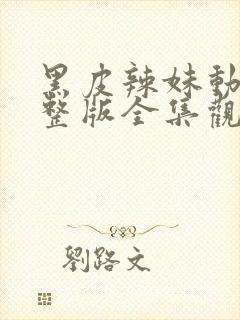 黑皮辣妹動
整版全集觀
劉路文